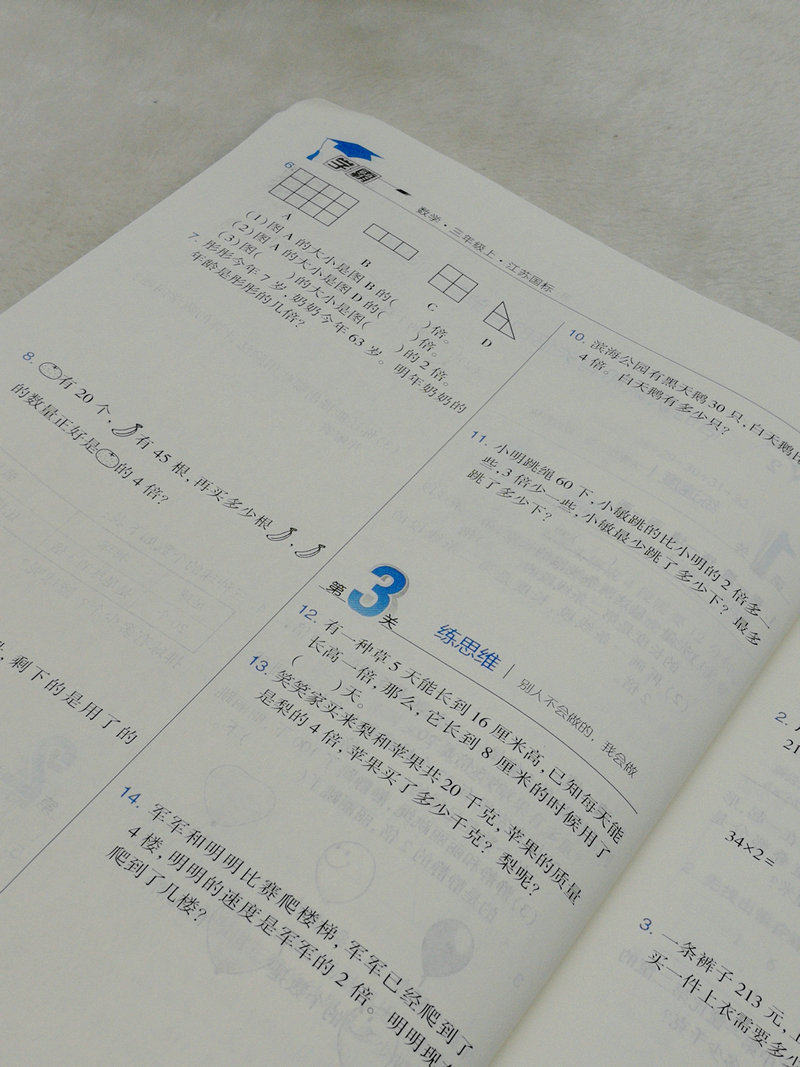 学霸
数学·三年级上·江苏国标
6.
A
B
C
D
(1)图 A 的大小是图 B 的(　　)倍。
(2)图 A 的大小是图 D 的(　　)倍。
(3)图(　　)的大小是图(　　)的 2 倍。
7. 彤彤今年 7 岁，奶奶今年 63 岁。明年奶奶的
年龄是彤彤的几倍？
8. 有 20 个，有 45 根，再买多少根，
的数量正好是的 4 倍？
剩下的是用了的
10. 滨海公园有黑天鹅 30 只，白天鹅
4 倍。白天鹅有多少只？
11. 小明跳绳 60 下，小敏跳的比小明的 2 倍多一
些，3 倍少一些，小敏最少跳了多少下？最多
跳了多少下？
第3关 练思维 | 别人不会做的，我会做
12. 有一种草 5 天能长到 16 厘米高，已知每天能
长高一倍，那么，它长到 8 厘米的时候用了
(　　)天。
13. 笑笑家买来梨和苹果共 20 千克，苹果的质量
是梨的 4 倍，苹果买了多少千克？梨呢？
14. 军军和明明比赛爬楼梯，军军已经爬到了
4 楼，明明的速度是军军的 2 倍。明明现
爬到了几楼？
2.
21
34×2=
3. 一条裤子 213 元，
买一件上衣需要多少